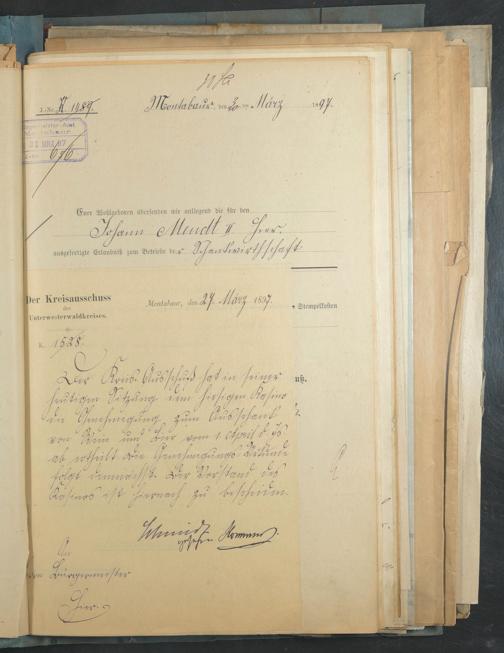 J.-Nr. K 1489.
Montabaur, den 20 ten März 1897.
616
Euer Wohlgeboren übersenden wir anliegend die für den
Johann Mendt II hier.
ausgefertigte Erlaubniß zum Betriebe der Schankwirthschaft
Der Kreisausschuss
des
Unterwesterwaldkreises.
Montabaur, den 27. März 1897.
Stempelkosten
K. 1528.
Der Kreis-Ausschuß hat in seiner
heutigen Sitzung dem hiesigen Kasino
die Genehmigung zum Ausschank
von Wein und Bier vom 1 April d. Js
ab ertheilt. Die Genehmigungs-Urkunde
folgt demnächst. Der Vorstand des
Kasinos ist hiernach zu bescheiden.
Schmidt
An
den Bürgermeister
Hier.